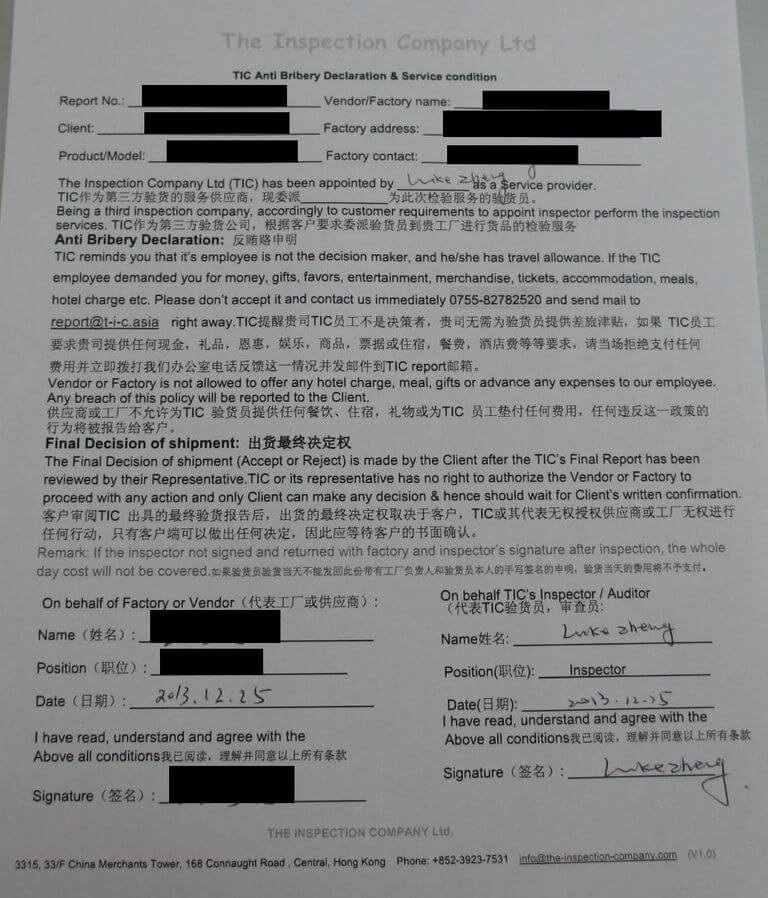 The Inspection Company Ltd
TIC Anti Bribery Declaration & Service condition
Report No.: Vendor/Factory name:
Client: Factory address:
Product/Model: Factory contact:
The Inspection Company Ltd (TIC) has been appointed by Luke zheng as a Service provider.
TIC作为第三方验货的服务供应商，现委派____________为此次检验服务的验货员。
Being a third inspection company, accordingly to customer requirements to appoint inspector perform the inspection
services. TIC作为第三方验货公司，根据客户要求委派验货员到贵工厂进行货品的检验服务
Anti Bribery Declaration: 反贿赂申明
TIC reminds you that it's employee is not the decision maker, and he/she has travel allowance. If the TIC
employee demanded you for money, gifts, favors, entertainment, merchandise, tickets, accommodation, meals,
hotel charge etc. Please don't accept it and contact us immediately 0755-82782520 and send mail to
report@t-i-c.asia right away.TIC提醒贵司TIC员工不是决策者，贵司无需为验货员提供差旅津贴，如果 TIC员工
要求贵司提供任何现金，礼品，恩惠，娱乐，商品，票据或住宿，餐费，酒店费等等要求，请当场拒绝支付任何
费用并立即拨打我们办公室电话反馈这一情况并发邮件到TIC report邮箱。
Vendor or Factory is not allowed to offer any hotel charge, meal, gifts or advance any expenses to our employee.
Any breach of this policy will be reported to the Client.
供应商或工厂不允许为TIC 验货员提供任何餐饮、住宿，礼物或为TIC 员工垫付任何费用，任何违反这一政策的
行为将被报告给客户。
Final Decision of shipment: 出货最终决定权
The Final Decision of shipment (Accept or Reject) is made by the Client after the TIC's Final Report has been
reviewed by their Representative.TIC or its representative has no right to authorize the Vendor or Factory to
proceed with any action and only Client can make any decision & hence should wait for Client's written confirmation.
客户审阅TIC 出具的最终验货报告后，出货的最终决定权取决于客户，TIC或其代表无权授权供应商或工厂无权进行
任何行动，只有客户端可以做出任何决定，因此应等待客户的书面确认。
Remark: If the inspector not signed and returned with factory and inspector's signature after inspection, the whole
day cost will not be covered.如果验货员验货当天不能发回此份带有工厂负责人和验货员本人的手写签名的申明，验货当天的费用将不予支付。
On behalf of Factory or Vendor（代表工厂或供应商）:
Name（姓名）:
Position（职位）:
Date（日期）: 2013.12.25
I have read, understand and agree with the
Above all conditions我已阅读，理解并同意以上所有条款
Signature（签名）:
On behalf TIC's Inspector / Auditor
（代表TIC验货员，审查员:
Name姓名: Luke zheng
Position(职位): Inspector
Date(日期): 2013.12.25
I have read, understand and agree with the
Above all conditions我已阅读，理解并同意以上所有条款
Signature（签名）: Luke zheng
THE INSPECTION COMPANY Ltd.
3315, 33/F China Merchants Tower, 168 Connaught Road , Central, Hong Kong Phone: +852-3923-7531 info@the-inspection-company.com (V1.0)